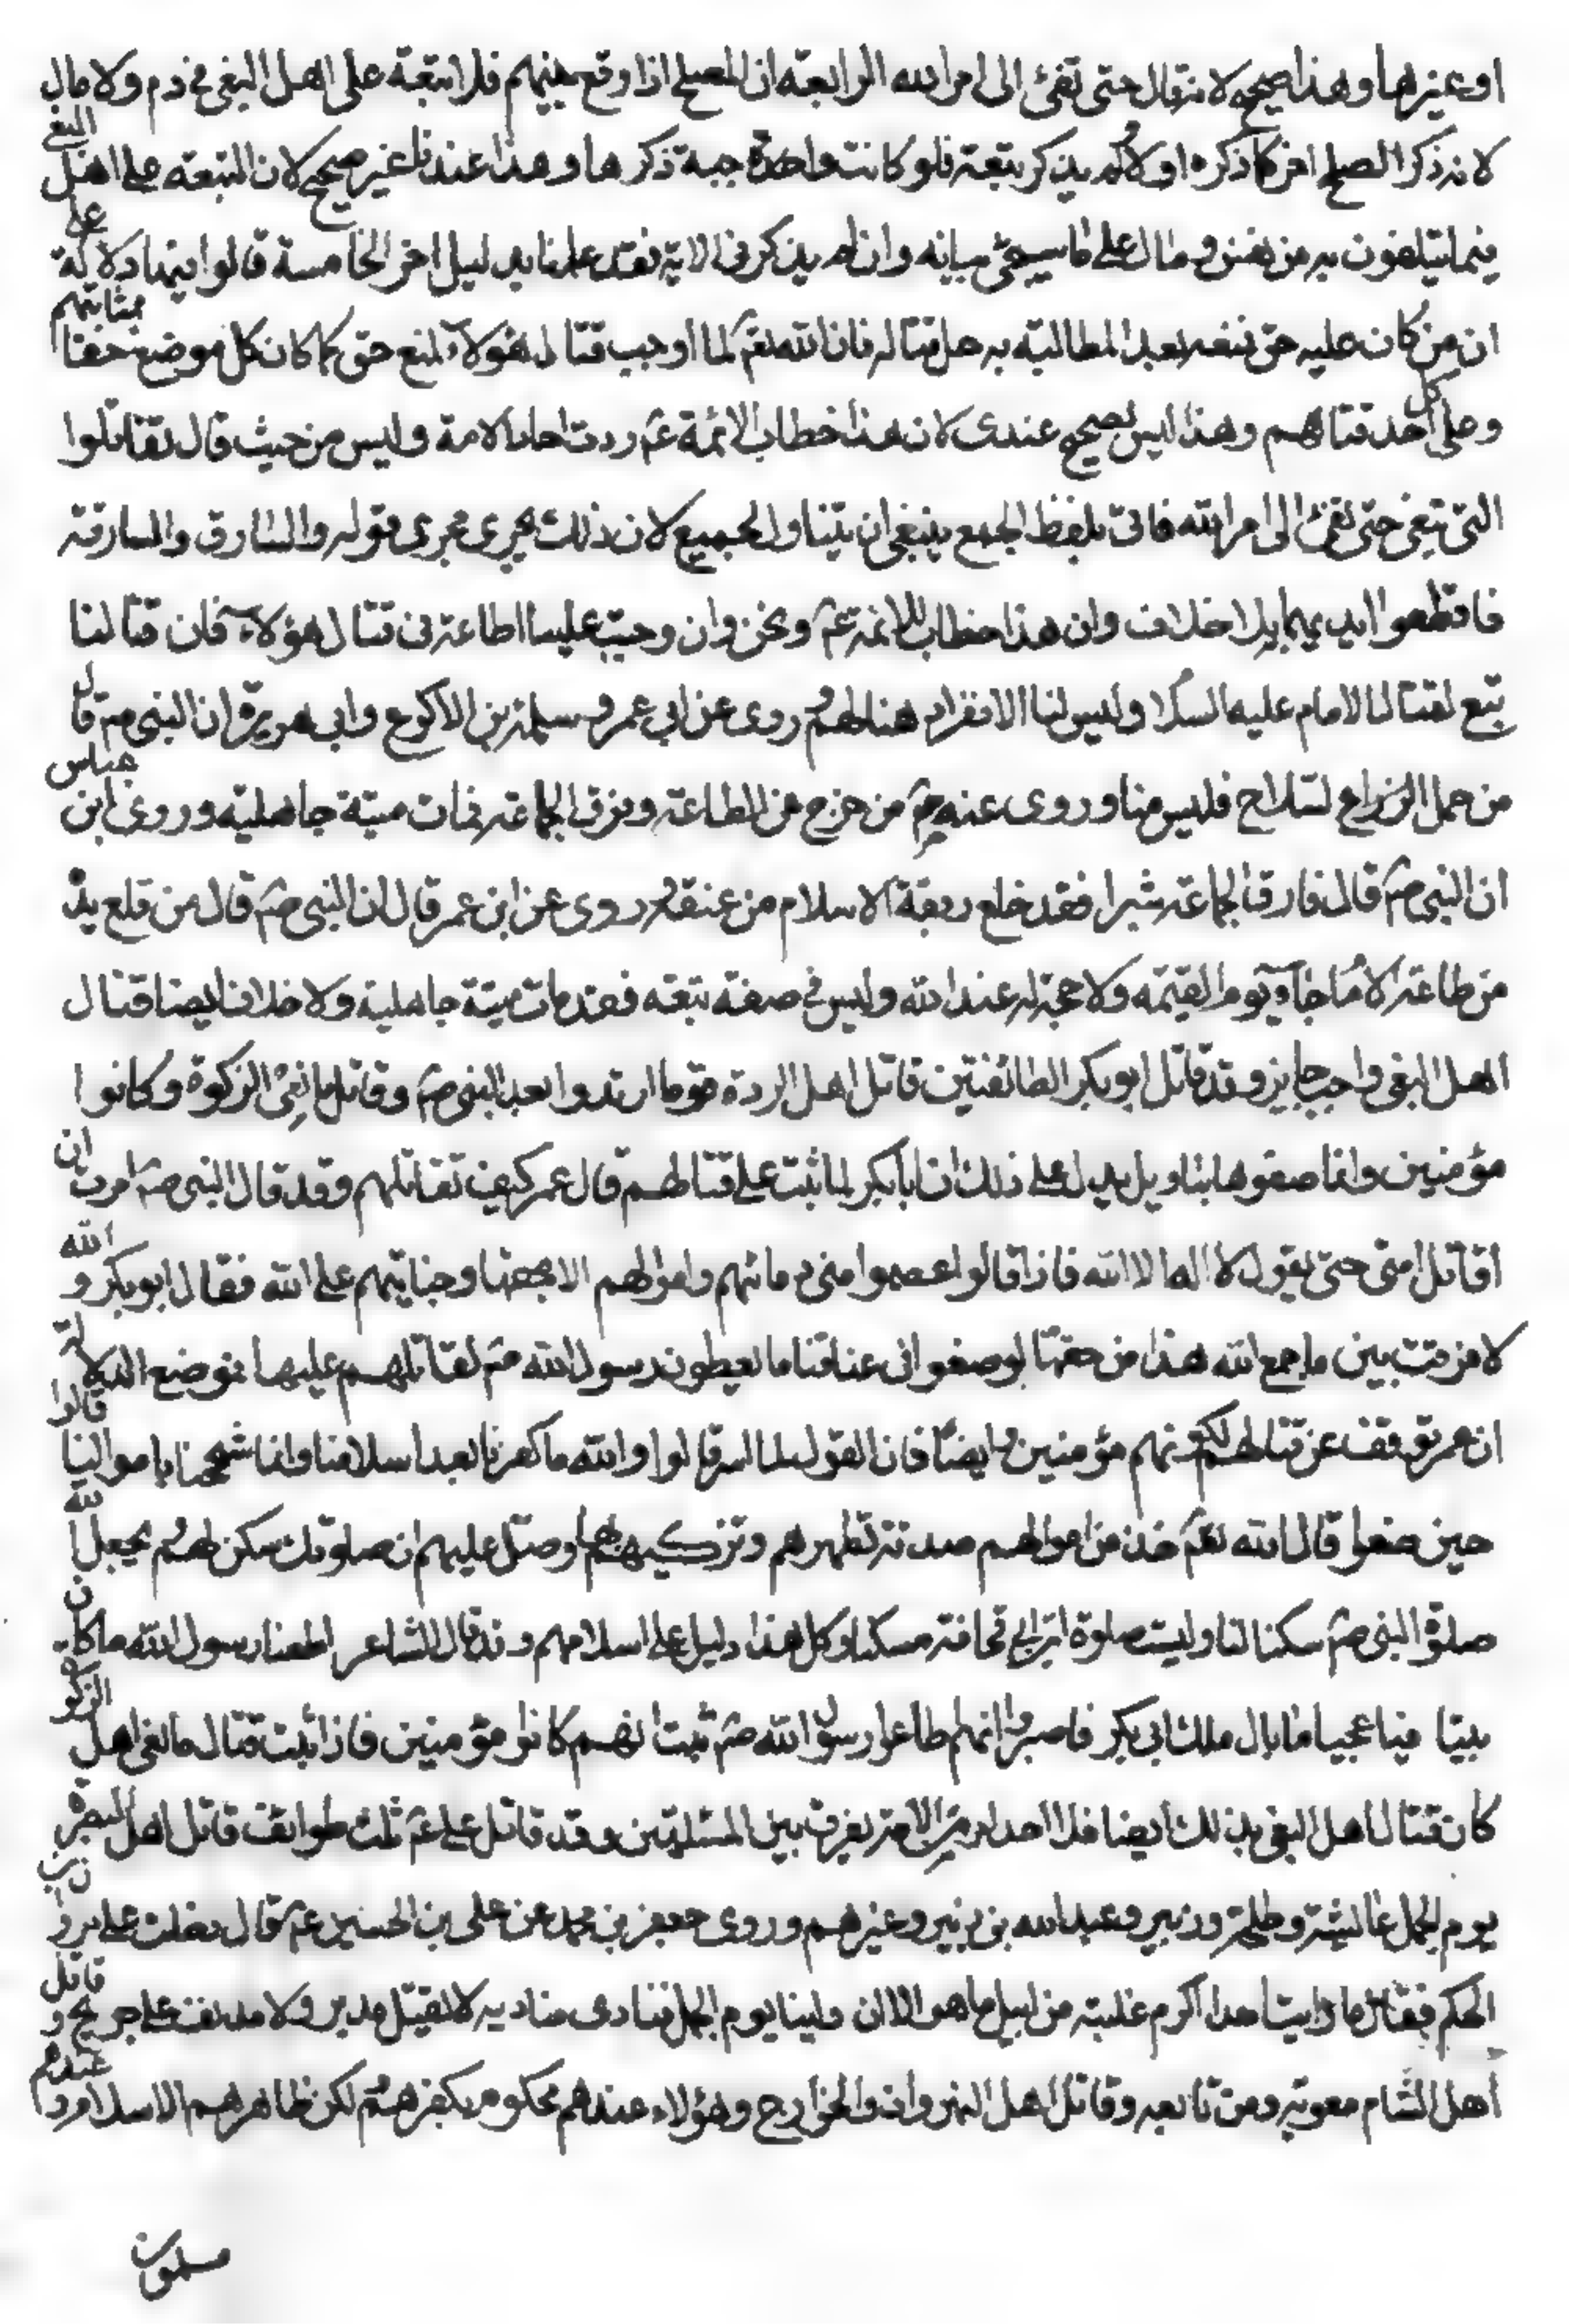 او غيرها وهذا صحيح لانه قال حتى تفئ الى امر الله الرابعة ان الصلح اذا وقع بينهم فلا تبعة على اهل البغى فى دم ولا مال
لانه ذكر الصلح اخرا كما ذكره اولا ولم يذكر تبعة فلو كانت واجبة ذكرها وهذا عندنا غير صحيح لان التبعة على اهل البغى
فيما يتلفون به من نفس و مال على ما سيجئ بيانه وان لم يذكر فى الاية فقد علمنا بدليل اخر الخامسة قالوا فيها دلالة على
ان من كان عليه حق فمنعه بعد المطالبة به حل قتاله فان الله تعم لما اوجب قتال هؤلاء لمنع حق كما كان كل موضع حقا بمثابتهم
وعلى كل احد قتالهم وهذا ليس بصحيح عندى لان هذا خطاب الائمة عم دون احاد الامة وليس من حيث قال فقاتلوا
التى تبغى حتى تفئ الى امر الله فاتى بلفظ الجمع ينبغى ان يتناول الجميع لان ذلك يجرى مجرى قوله والسارق والسارقة
فاقطعوا ايديهما بلا خلاف وان هذا خطاب للائمة عم ونحن وان وجبت علينا اطاعة فى قتال هؤلاء فان قتالنا
تبع لقتال الامام عليه السلام وليس لنا الانفراد بقتالهم روى عن ابى عمر و سلمة بن الاكوع وابى هريرة ان النبى صم قال
من حمل السلاح فليس منا وروى عنه صم من خرج عن الطاعة وفرق الجماعة فمات ميتة جاهلية وروى ابن عباس
ان النبى صم قال فارق الجماعة شبرا فقد خلع ربقة الاسلام من عنقه وروى عن ابن عمر قال ان النبى صم قال من قلع يد
من طاعة الامام جاء يوم القيمة ولا حجة له عند الله وليس فى صفته تبعه فقد مات ميتة جاهلية ولا خلاف ايضا قتال
اهل البغى واجب جايز وقد قاتل ابو بكر الطائفتين قاتل اهل الردة قوما ارتدوا بعد النبى صم وقاتل مانعى الزكوة وكانوا
مؤمنين وانما صنعوها بتاويل يدل على ذلك ان ابا بكر لما ثبت على قتالهم قال عمر كيف تقاتلهم وقد قال النبى صم امرت ان
اقاتل امتى حتى يقول لا اله الا الله فاذا قالوا عصموا منى دمائهم واموالهم الا بحقها وجنايتهم على الله فقال ابو بكر والله
لا فرقت بين ما جمع الله هذا من حقها لو منعوا فى عناقنا ما يعطون رسول الله صم لقاتلهم عليها موضع الدلالة
ان عمر توقف عن قتالهم لكونهم مؤمنين وايضا فان القوم لما اسر قالوا والله ما كفرنا بعد اسلامنا وانما شححنا باموالنا قالوا
حين منعوا قال الله تعم خذ من اموالهم صدقة تطهرهم وتزكيهم بها وصل عليهم ان صلوتك سكن لهم يجعل الله
صلوة النبى صم سكنا لنا وليست صلوة ابن ابى قحافة مسكنا وكل هذا دليل على اسلامهم وقد قال الشاعر اطعنا رسول الله ما كان
بيننا فيا عجبا ما بال ملك ابى بكر فاصبروا انهم طاعوا رسول الله صم ثبت انهم كانوا مؤمنين فاذا ثبت قتال مانعى اهل الزكوة
كان قتال اهل البغى بذلك ايضا فلا احد من الامة يفرق بين المسئلتين وقد قاتل على عم ثلث طوائف قاتل اهل البصرة
يوم الجمل عائشة وطلحة وزبير وعبد الله بن زبير وغيرهم وروى جعفر بن محمد عن على بن الحسين عم قال دخلت على مروان بن
الحكم فقال ما رايت احدا اكرم غلبة من ابيك ما هو الا ان ولينا يوم الجمل فنادى مناديه لا يقتل مدبر ولا مدنف على جريح وقاتل
اهل الشام معوية ومن تابعه وقاتل اهل النهروان والخوارج وهؤلاء عندهم محكوم بكفرهم لكن ظاهرهم الاسلام وعندهم
مسلمون